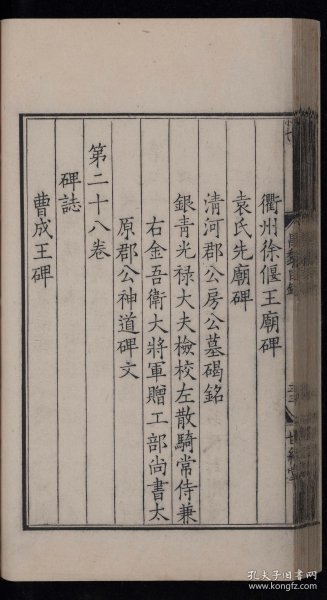 衢州徐偃王廟碑
袁氏先廟碑
清河郡公房公墓碣銘
銀青光禄大夫檢校左散騎常侍兼
右金吾衛大將軍贈工部尚書太
原郡公神道碑文
第二十八卷
碑誌
曹成王碑
孔夫子旧书网